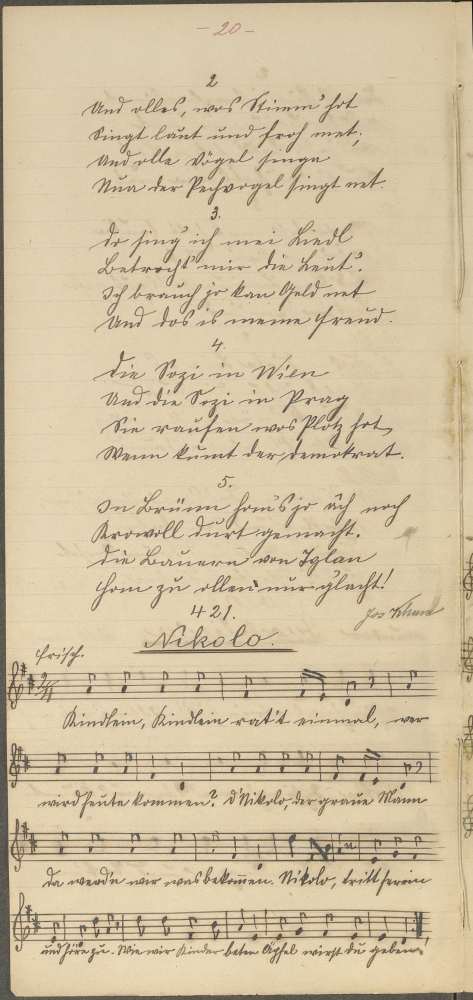 - 20 -
2
Und olles, wos Stimm' hot
Singt laut und froh met;
Und olle Vögel singa
Nua der Pechvogel singt net.
3.
Do sing' ich mei Liedl
Betracht' mir die Leut'.
Ich brauch jo kan Geld net
Und dos is meine Freud.
4.
Die Sozi in Wien
Und die Sozi in Prag
Sie raufen wos Plotz hot,
Wenn kumt der Demokrat.
5.
In Brünn hom's jo äch noch
Krowoll durt gemacht.
Die Bauern von Iglau
hom zu ollen nur glacht!
421.
Nikolo.
Frisch.
Kindlein, Kindlein rat't einmal, wer
wird heute kommen? D'Nikolo, der graue Mann
Da werd'n wir was bekom̄en. Nikolo, tritt herein
und höre zu. Wie wir Kinder beten Äpfel wirst du geben!